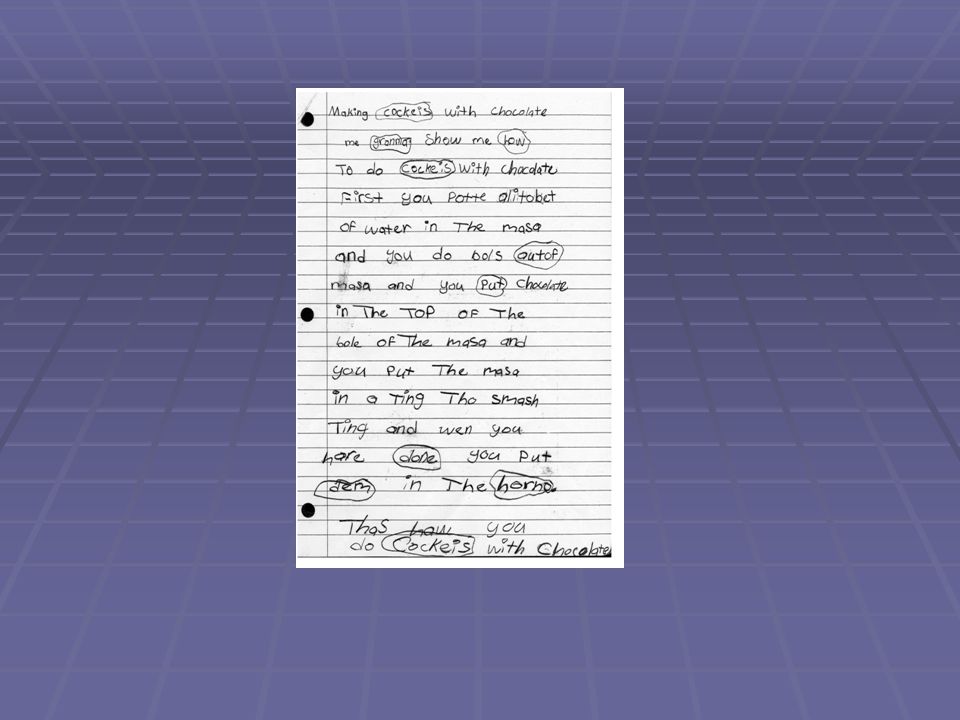 Making cockeis with chocolate
me granman show me how
To do cockeis with chocolate
First you Potte alitobet
OF water in The masa
and you do bols outof
masa and you Put chocolate
in The TOP OF The
bole of The masa and
you Put The masa
in a Ting Tho smash
Ting and wen you
hare done you put
dem in The horno.
Thas how you
do Cockeis with Chocolate